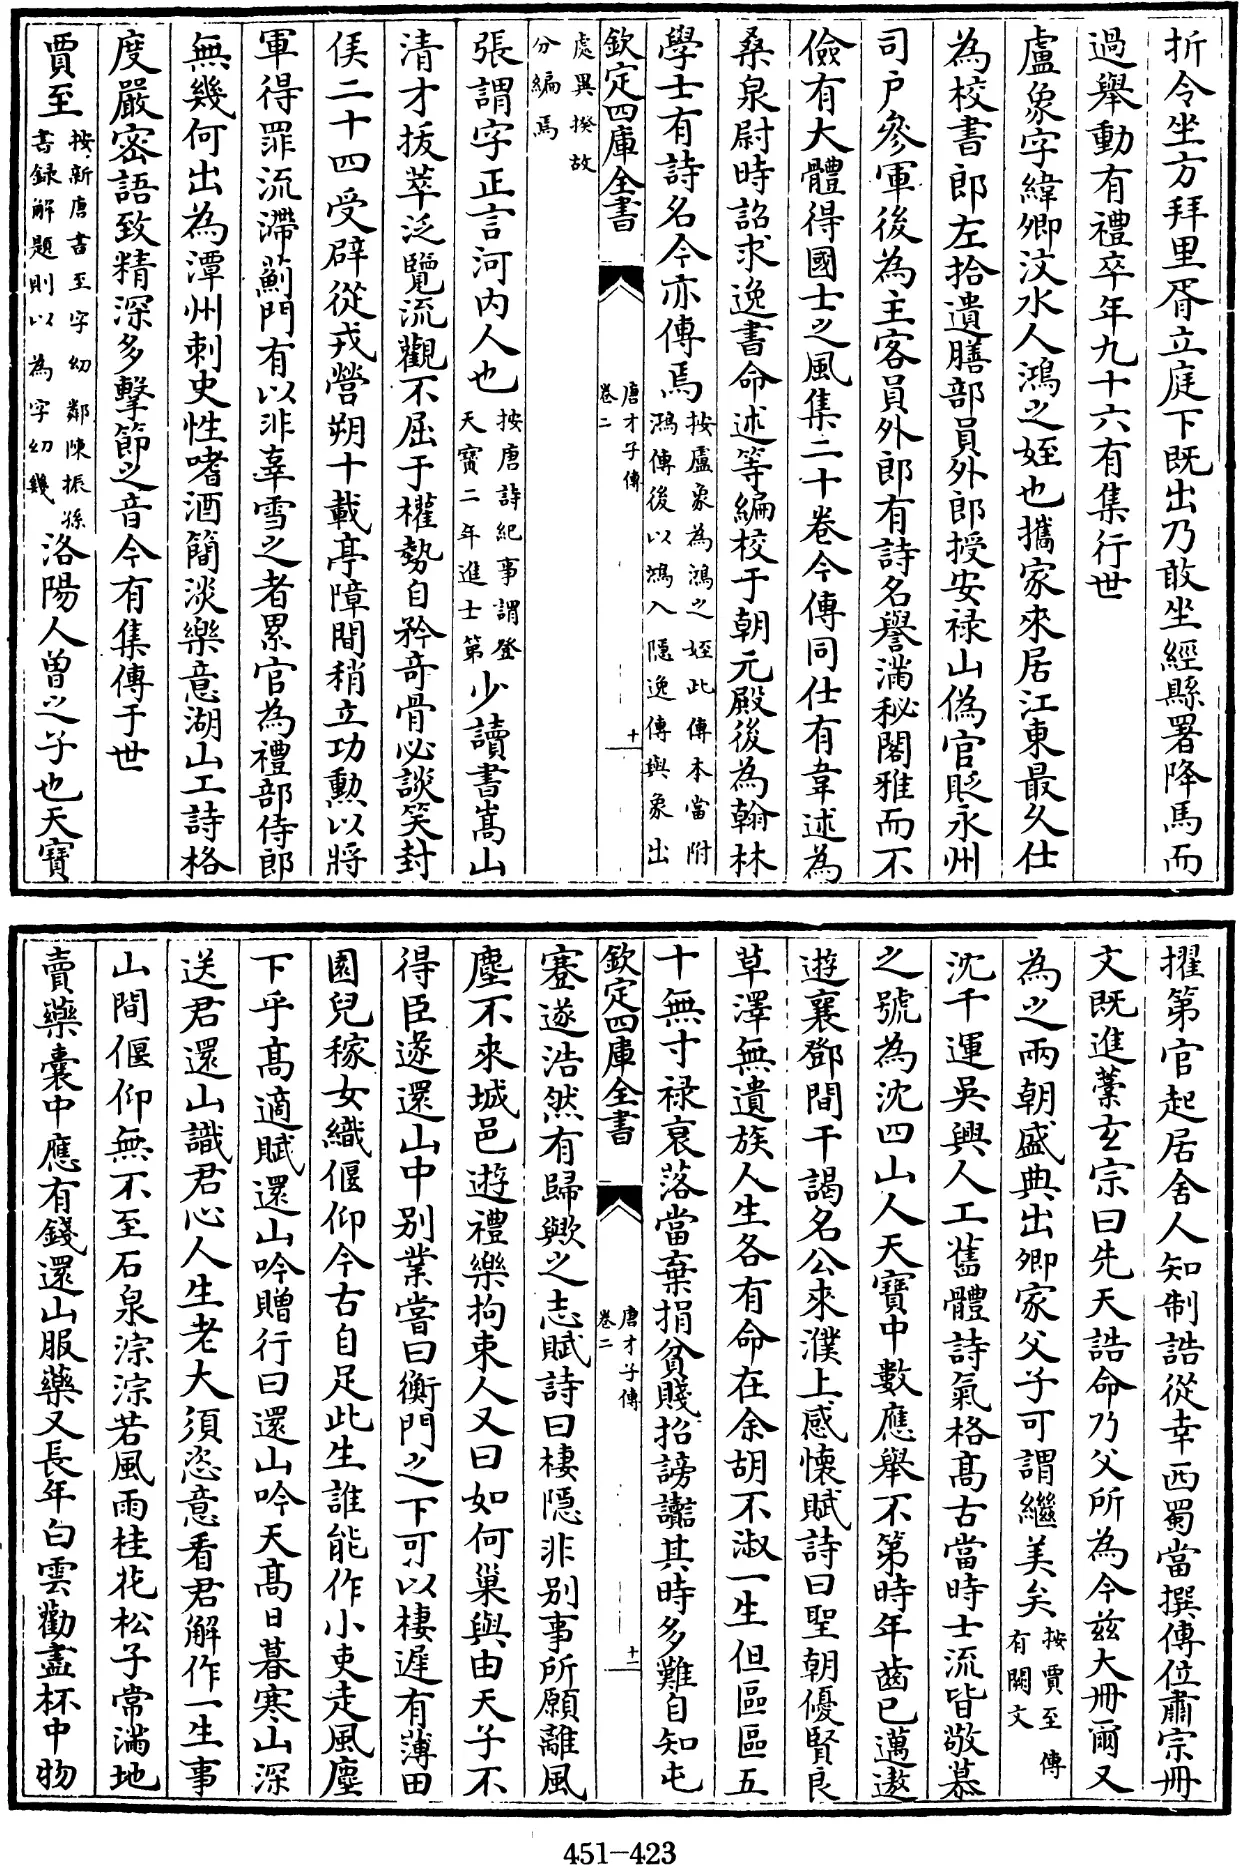 折令坐方拜里胥立庭下既出乃敢坐經縣署降馬而
過舉動有禮卒年九十六有集行世
盧象字緯卿汶水人鴻之姪也攜家來居江東最久仕
為校書郎左拾遺膳部員外郎授安禄山偽官貶永州
司户參軍後為主客員外郎有詩名譽滿秘閣雅而不
儉有大體得國士之風集二十卷今傳同仕有韋述為
桑泉尉時詔求逸書命述等編校于朝元殿後為翰林
學士有詩名今亦傳焉
按盧象為鴻之姪此傳本當附
鴻傳後以鴻入隱逸傳與象出
欽定四庫全書
唐才子傳
卷二
十
處異揆故
分編焉
張謂字正言河内人也
按唐詩紀事謂登
天寶二年進士第
少讀書嵩山
清才拔萃泛覽流觀不屈于權勢自矜竒骨必談笑封
侯二十四受辟從戎營朔十載亭障間稍立功勲以將
軍得罪流滯薊門有以非辜雪之者累官為禮部侍郎
無幾何出為潭州刺史性嗜酒簡淡樂意湖山工詩格
度嚴密語致精深多擊節之音今有集傳于世
賈至
按新唐書至字幼鄰陳振孫
書録解題則以為字幼幾
洛陽人曽之子也天寶
擢第官起居舍人知制誥從幸西蜀當撰傳位肅宗冊
文既進藁玄宗曰先天誥命乃父所為今兹大冊爾又
為之兩朝盛典出卿家父子可謂繼美矣
按賈至傳
有闕文
沈千運吳興人工舊體詩氣格髙古當時士流皆敬慕
之號為沈四山人天寶中數應舉不第時年齒已邁遨
遊襄鄧間干謁名公來濮上感懷賦詩曰聖朝優賢良
草澤無遺族人生各有命在余胡不淑一生但區區五
十無寸禄衰落當棄捐貧賤招謗讟其時多難自知屯
欽定四庫全書
唐才子傳
卷二
十一
蹇遂浩然有歸歟之志賦詩曰棲隱非别事所願離風
塵不來城邑遊禮樂拘束人又曰如何巢與由天子不
得臣遂還山中别業嘗曰衡門之下可以棲遲有薄田
園兒稼女織偃仰今古自足此生誰能作小吏走風塵
下乎髙適賦還山吟贈行曰還山吟天髙日暮寒山深
送君還山識君心人生老大須恣意看君解作一生事
山間偃仰無不至石泉淙淙若風雨桂花松子常滿地
賣藥囊中應有錢還山服藥又長年白雲勸盡杯中物
451-423